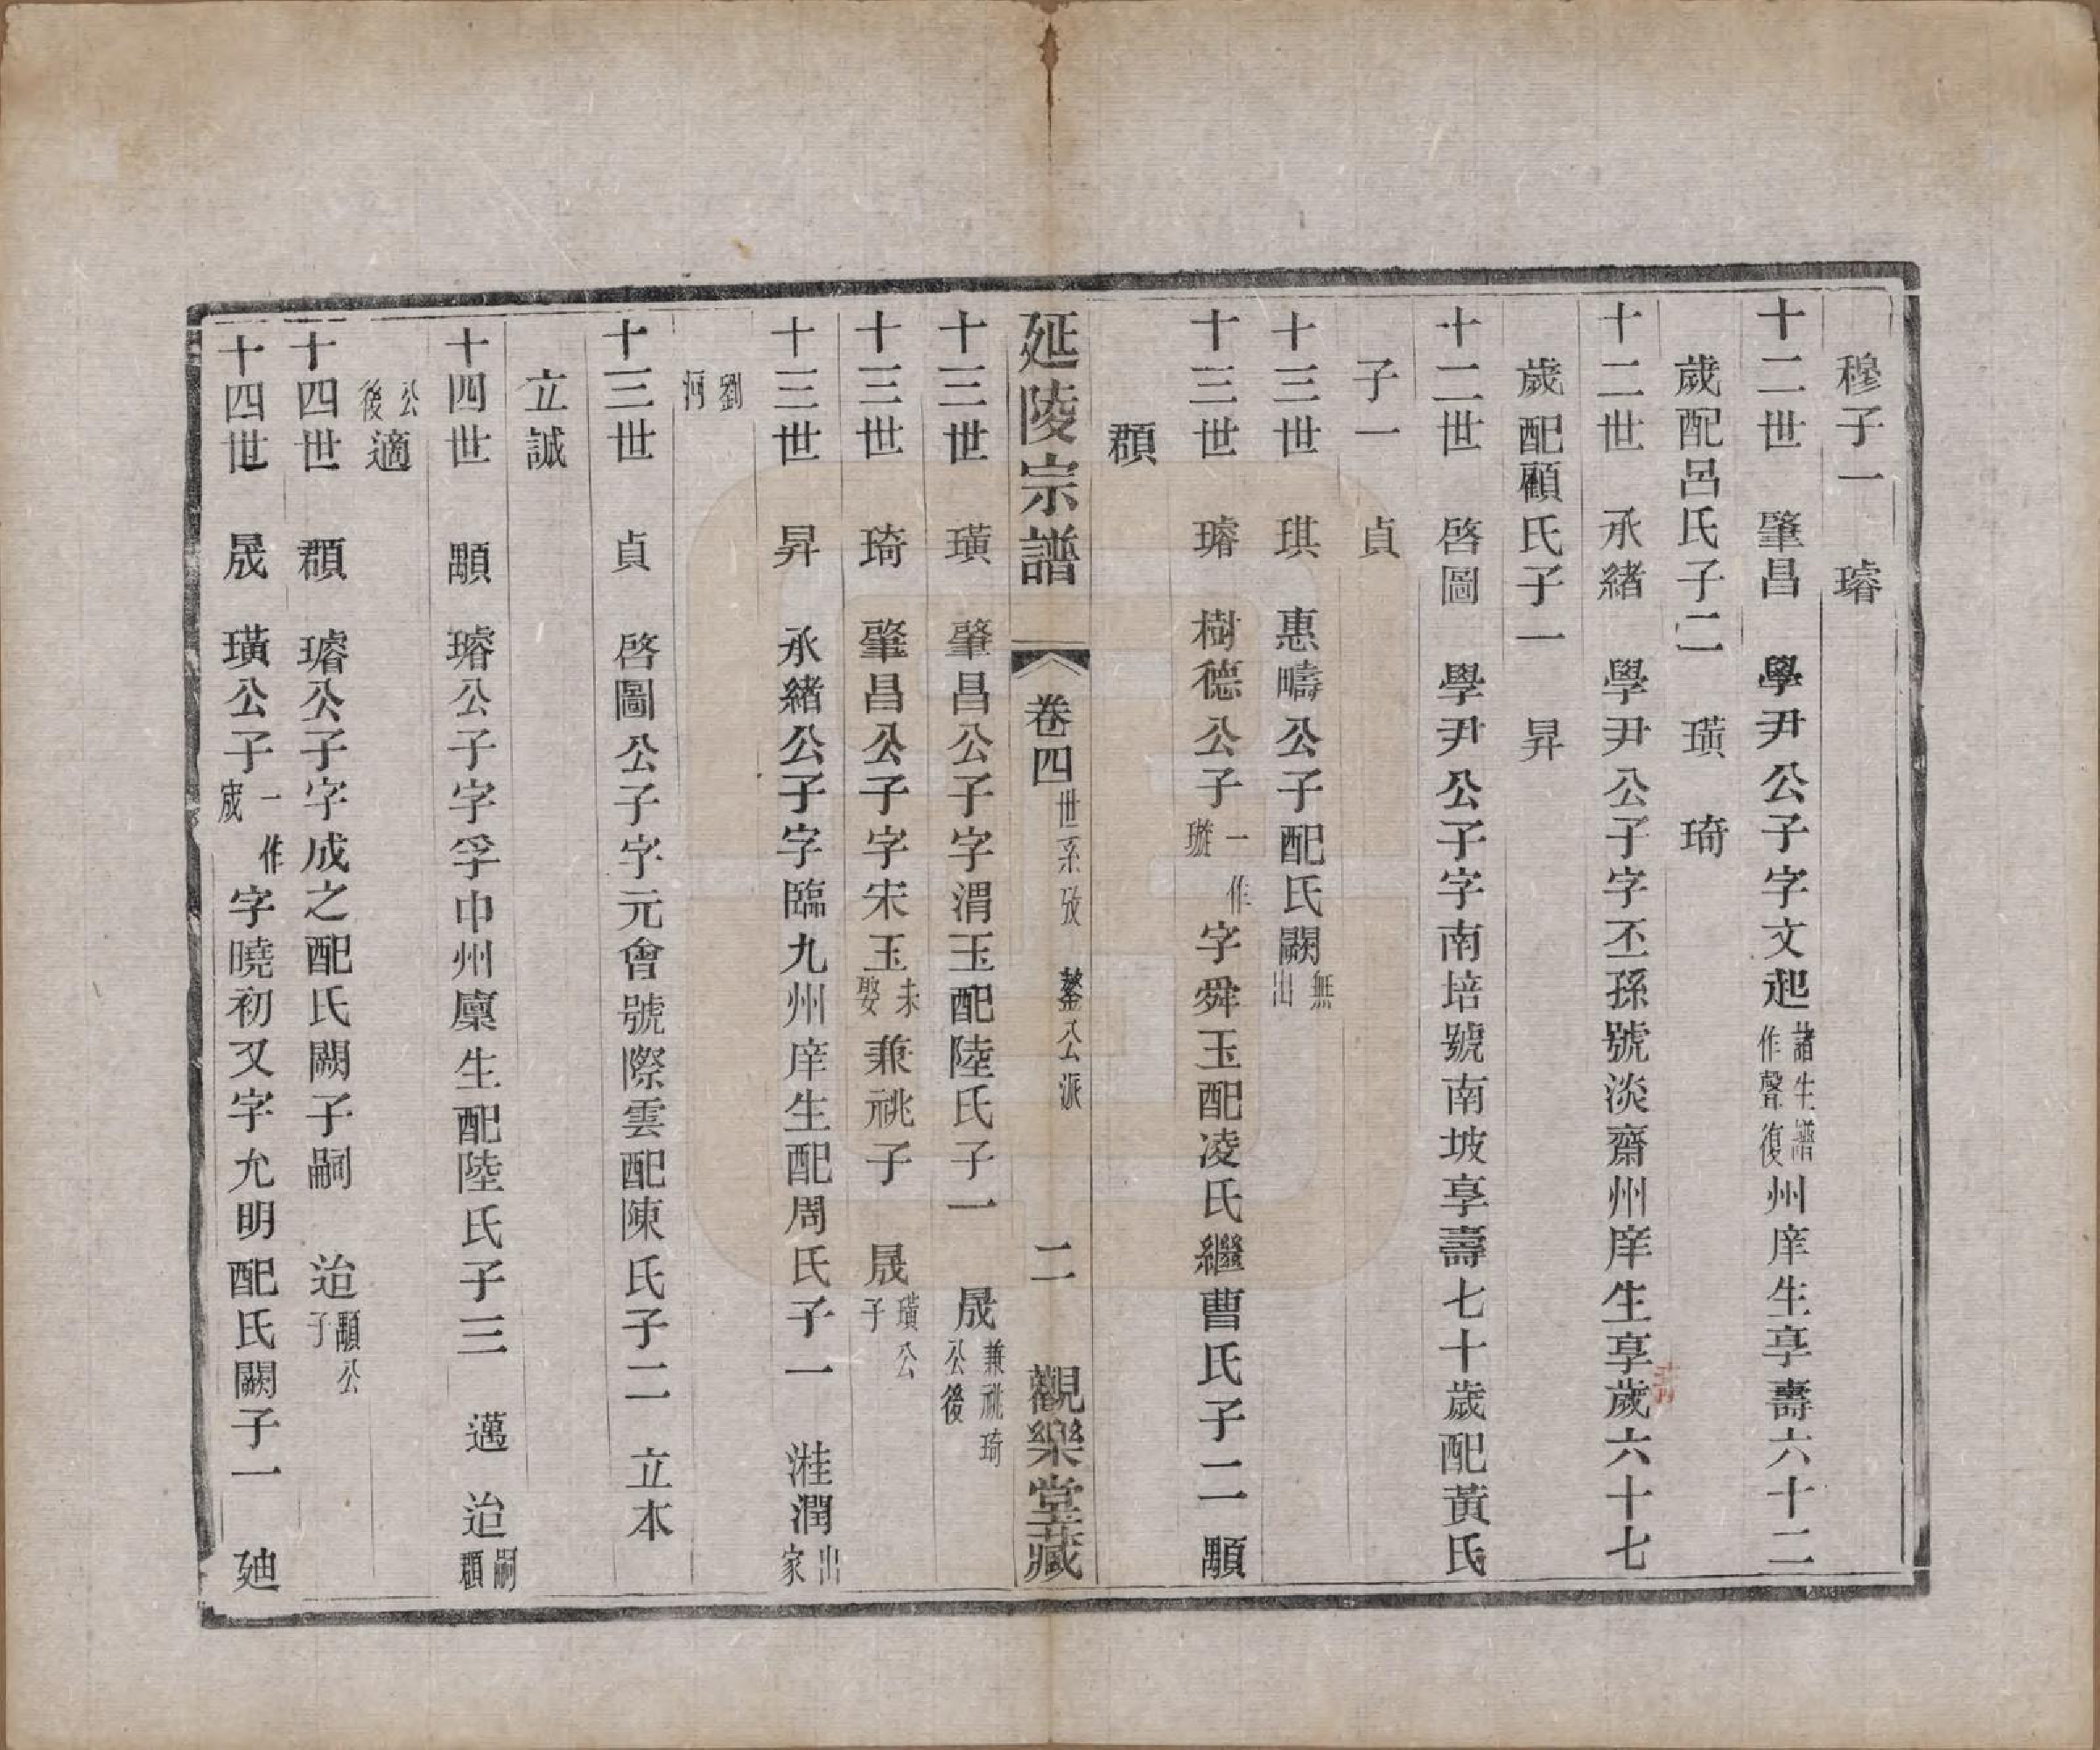 穆子一　璿
十二世　肇昌　學尹公子字文起諸生譜作聲復州庠生享壽六十二
歲配呂氏子二　璜　琦
十二世　承緒　學尹公子字丕孫號淡齋州庠生享歲六十七
歲配顧氏子一　昇
十二世　啓圖　學尹公子字南培號南坡享壽七十歲配黃氏
子一　貞
十三世　琪　惠疇公子配氏闕無出
十三世　璿　樹德公子一作璇字舜玉配凌氏繼曹氏子二　顒
頵
延陵宗譜　卷四世系攷　鏊公派　二　觀樂堂藏
十三世　璜　肇昌公子字渭玉配陸氏子一　晟兼祧琦公後
十三世　琦　肇昌公子字宋玉未娶兼祧子　晟璜公子
十三世　昇　承緒公子字臨九州庠生配周氏子一　溎潤出家
劉河
十三世　貞　啓圖公子字元會號際雲配陳氏子二　立本
立誠
十四世　顒　璿公子字孚中州廩生配陸氏子三　邁　迨嗣頵
公後適
十四世　頵　璿公子字成之配氏闕子嗣　迨顒公子
十四世　晟　璜公子一作宬字曉初又字允明配氏闕子一　廸